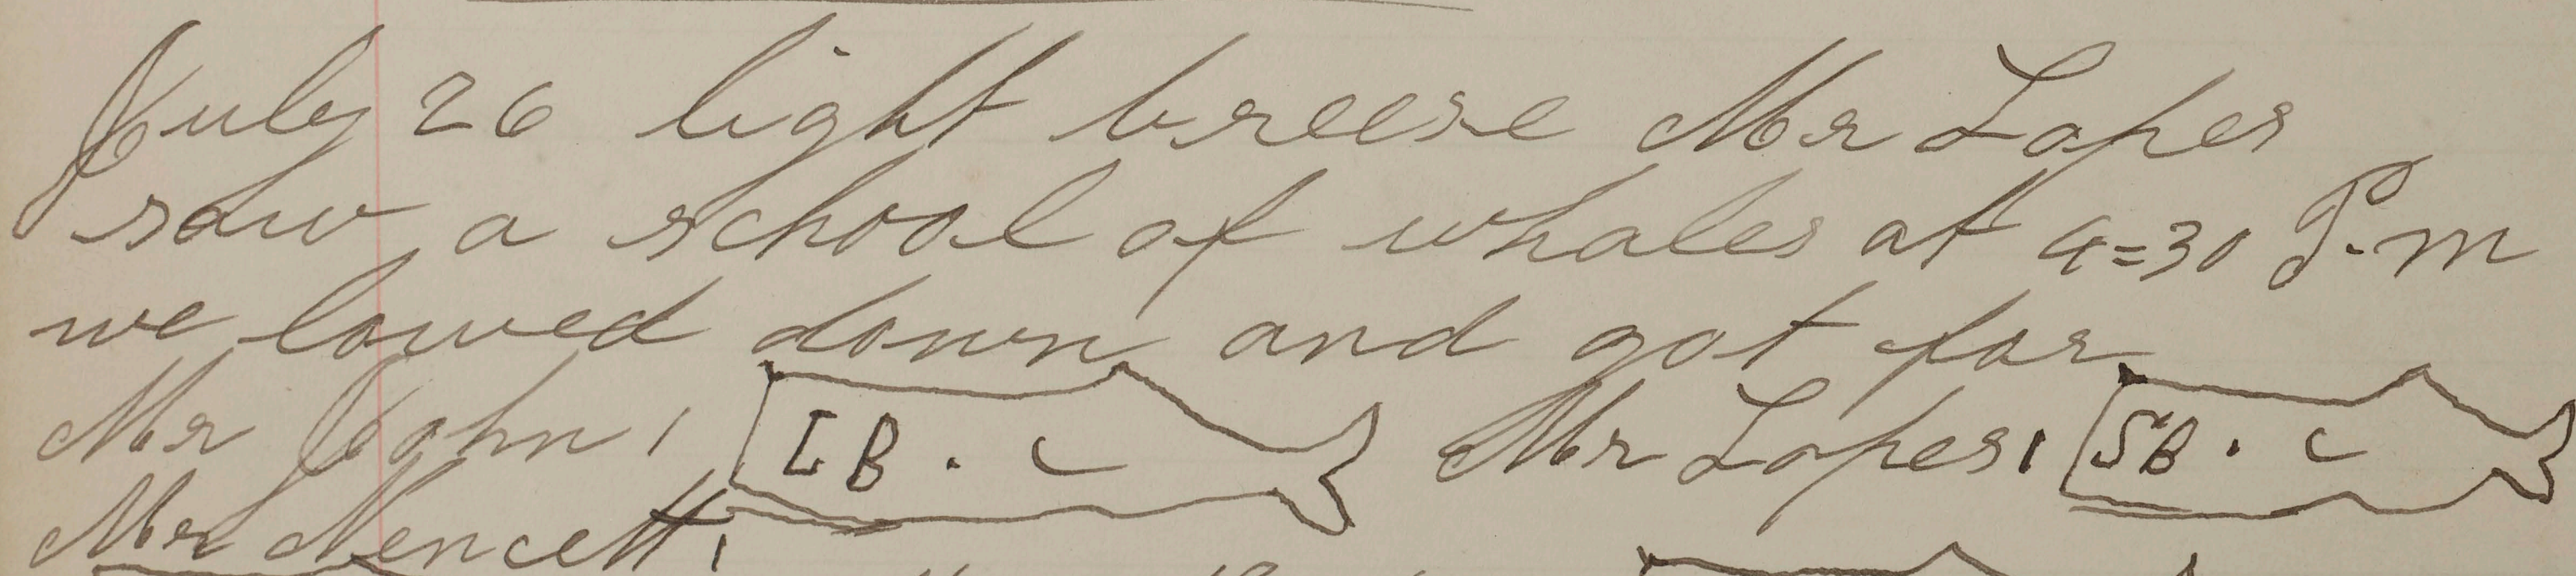 July 26 light breese Mr Lopes
saw a school of whales at 4=30 P.m
we lowed down and got for
Mr John 1 LB. C Mr Lopes 1 SB. C
Mr Vencett 1